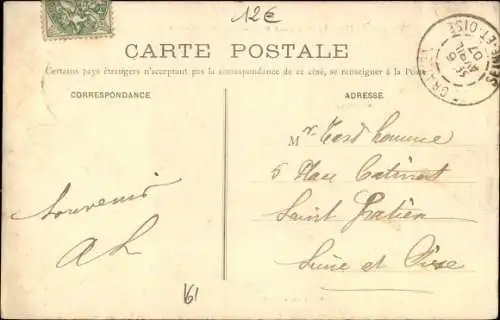 12€
CARTE POSTALE
Certains pays étrangers n'acceptent pas la correspondance de ce côté, se renseigner à la Poste
CORRESPONDANCE
ADRESSE
Mr.
5 Place Catinat
Saint Gratien
Seine et Oise
Souvenir
ET-OISE
AVRIL
07